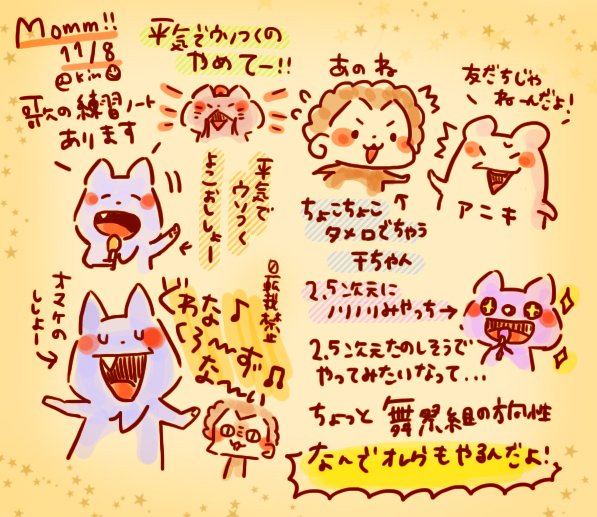 Momm!!
11/8
@kin
歌の練習ノート
あります
平気でウソつくの
やめてー!!
あのね
友だちじゃ
ねーんだよ!
アニキ
平気で
ウソつく
よこおししょー
ちょこちょこ
タメ口でちゃう
干ちゃん
2.5次元に
ノリノリみやっち→
2.5次元たのしそうで
やってみたいなって...
ちょっと 舞祭組の方向性
なんでオレらもやるんだよ!
オマケの
ししょー
無断転載禁止
な〜ず
な〜い